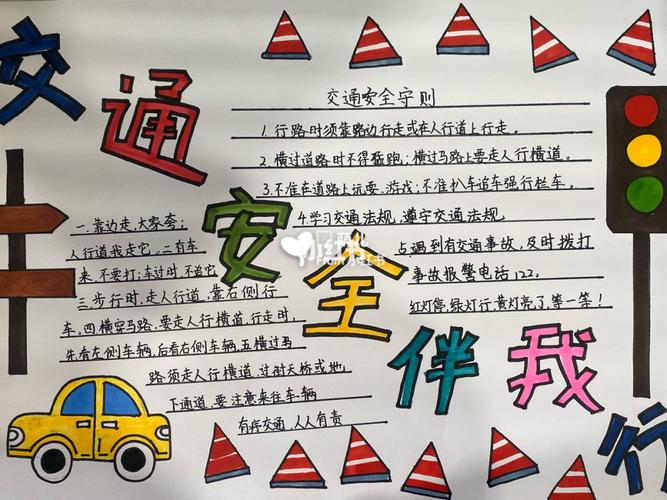 交通安全伴我行
交通安全守则
1.行路时须靠路边行走或在人行道上行走。
2.横过道路时不得奔跑;横过马路上要走人行横道。
3.不准在道路上玩耍.游戏;不准扒车追车强行栏车。
4.学习交通法规,遵守交通法规
点遇到有交通事故,及时拨打
事故报警电话122,
红灯停,绿灯行,黄灯亮了,等一等!
一.靠边走,大家夸,
人行道我走它。二有车
来,不要打;车过时,不追它
三步行时,走人行道,靠右侧行
车。四横穿马路,要走人行横道,行走时,
先看左侧车辆,后看右侧车辆,五横过马
路须走人行横道,过街天桥或地
下通道,要注意来往车辆
有序交通,人人有责